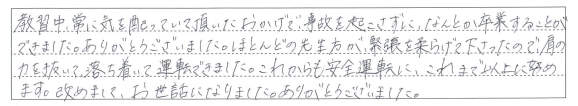 教習中、常に気を配っていて頂いたおかげで、事故を起こさずに、なんとか卒業することが
できました。ありがとうございました。ほとんどの先生方が、緊張を柔らげて下さったので、肩の
力を抜いて、落ち着いて運転できました。これからも安全運転に、これまで以上に努め
ます。改めまして、お世話になりました。ありがとうございました。